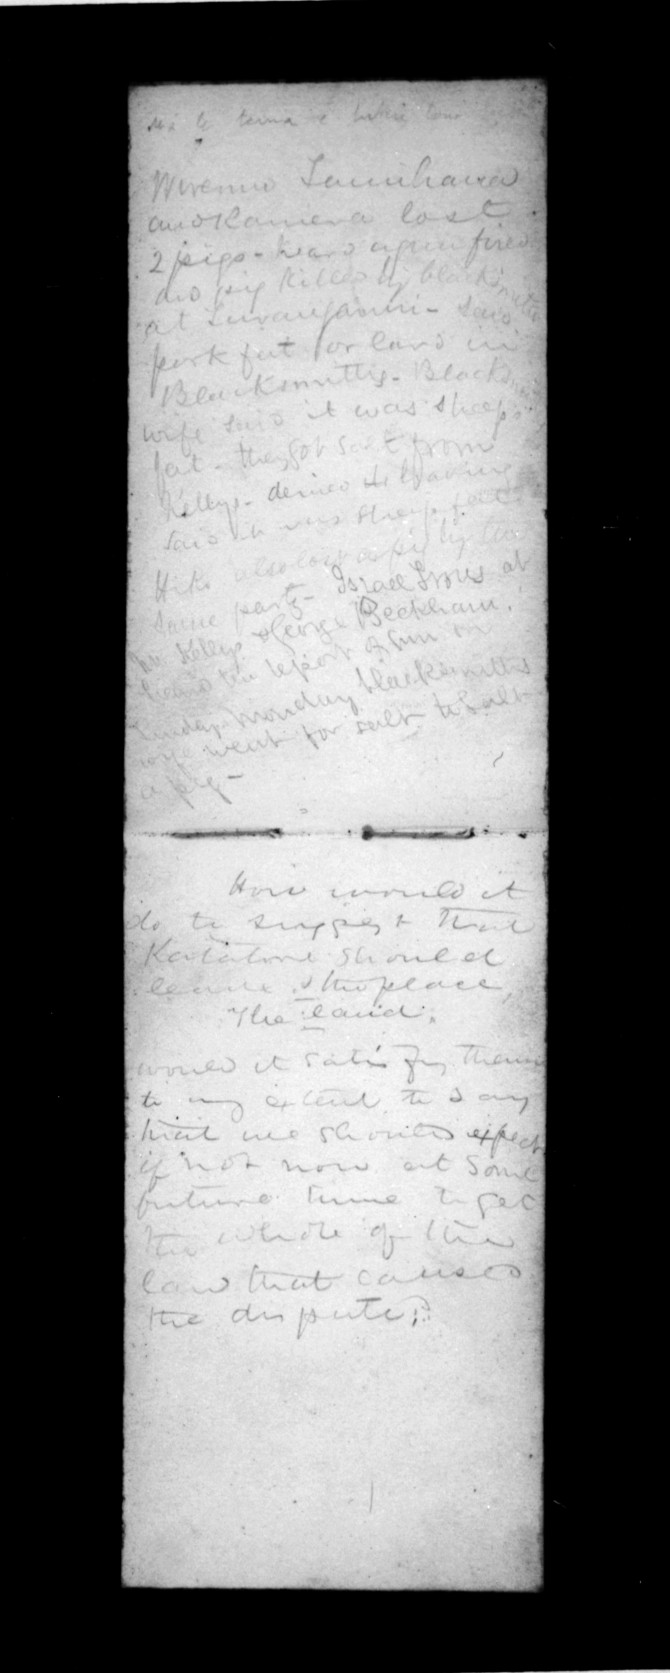 Wiremu
and Ramera lost
2 pigs - heard a gun fired
and pig killed by blacksmith
at - saw
pork fat or lard in
Blacksmiths - Blacksmiths
wife said it was sheeps
fat - they got salt from
Kellys - denied it having
said it was sheep fat
Hiks also lost a pig by the
same party - Israel at
Mr Kellys & George Beckham.
heard the report of Gun on
Sunday. Monday blacksmiths
wife went for salt to salt
a pig -
How would it
do to suggest that
should
leave the place,
The land.
would it satisfy them
to any extent to say
that we should expect
if not now at some
future time to get
the whole of the
land that caused
the dispute?